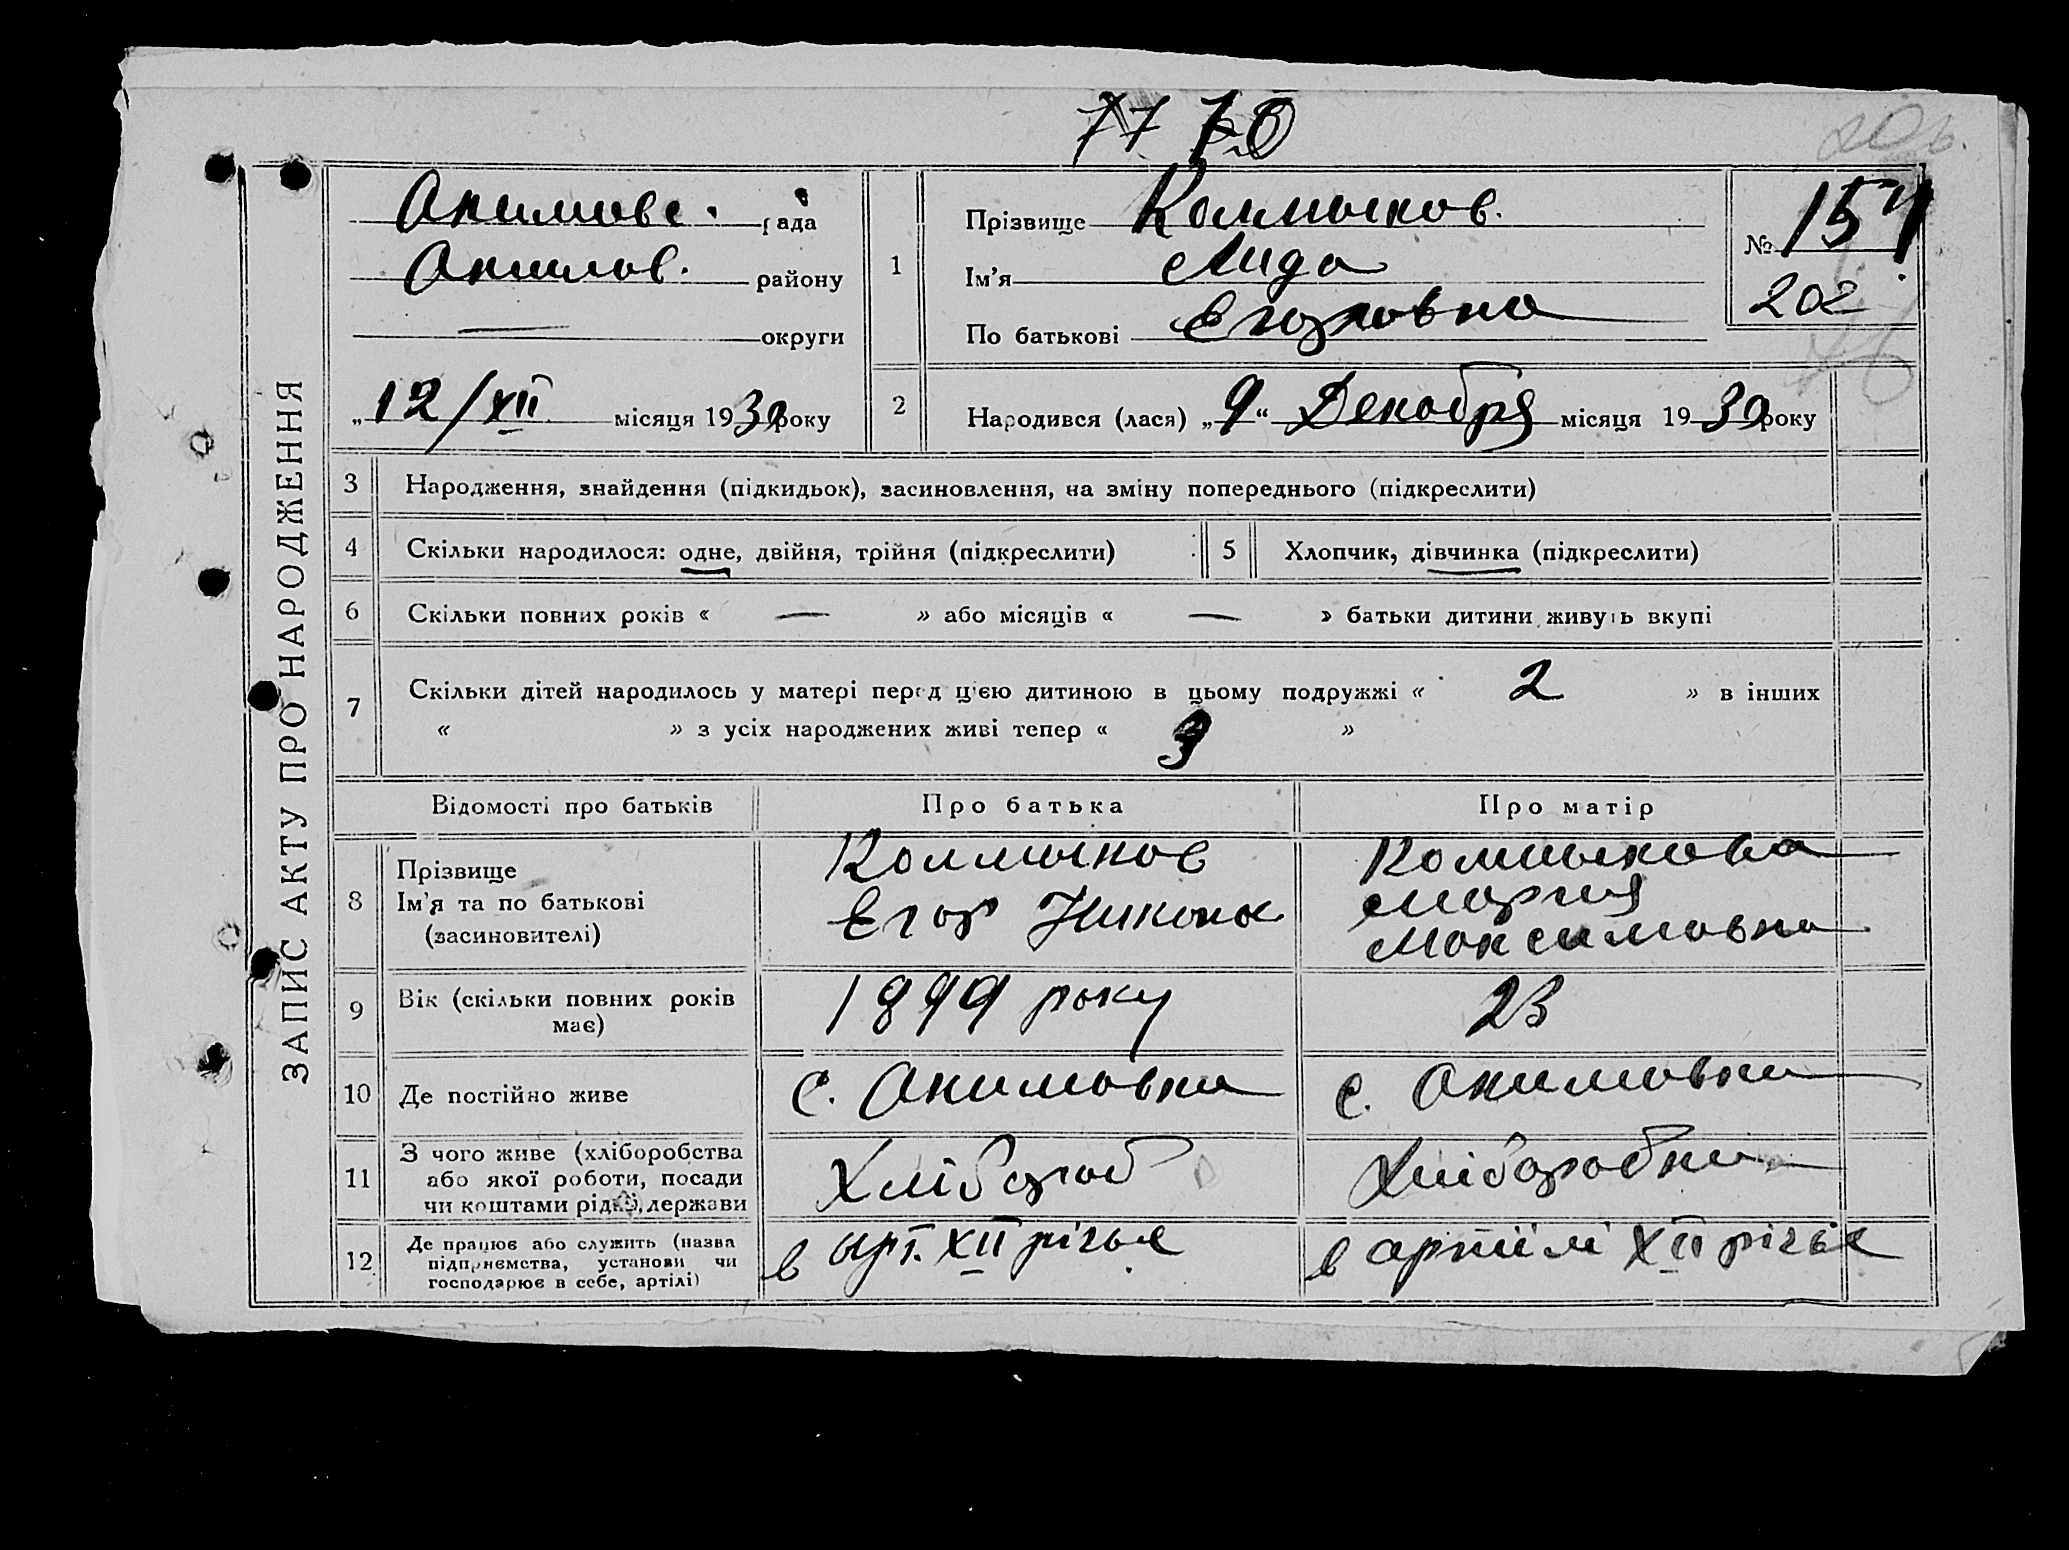 77
Акимовс. рада
Акимов. району
— округи
„12/XII місяця 1930 року
1
Прізвище Колмыков.
Ім'я Лида
По батькові Егоровна
№ 154
202
2
Народився (лася) „9“ Декабря місяця 1930 року
ЗАПИС АКТУ ПРО НАРОДЖЕННЯ
3 Народження, знайдення (підкидьок), засиновлення, на зміну попереднього (підкреслити)
4 Скільки народилося: одне, двійня, трійня (підкреслити)
5 Хлопчик, дівчинка (підкреслити)
6 Скільки повних років « — » або місяців « — » батьки дитини живуть вкупі
7 Скільки дітей народилось у матері перед цією дитиною в цьому подружжі « 2 » в інших
« » з усіх народжених живі тепер « 3 »
Відомості про батьків Про батька Про матір
8
Прізвище
Ім'я та по батькові
(засиновителі)
Колмыков
Егор Никола
Колмыкова
Мария
Максимовна
9
Вік (скільки повних років
має)
1899 року
23
10 Де постійно живе
с. Акимовки
с. Акимовки
11
З чого живе (хліборобства
або якої роботи, посади
чи коштами рідні, держави
Хлібороб
Хліборобки
12
Де працює або служить (назва
підприємства, установи чи
господарює в себе, артілі)
в арт. XII річья
в артілі XII річья